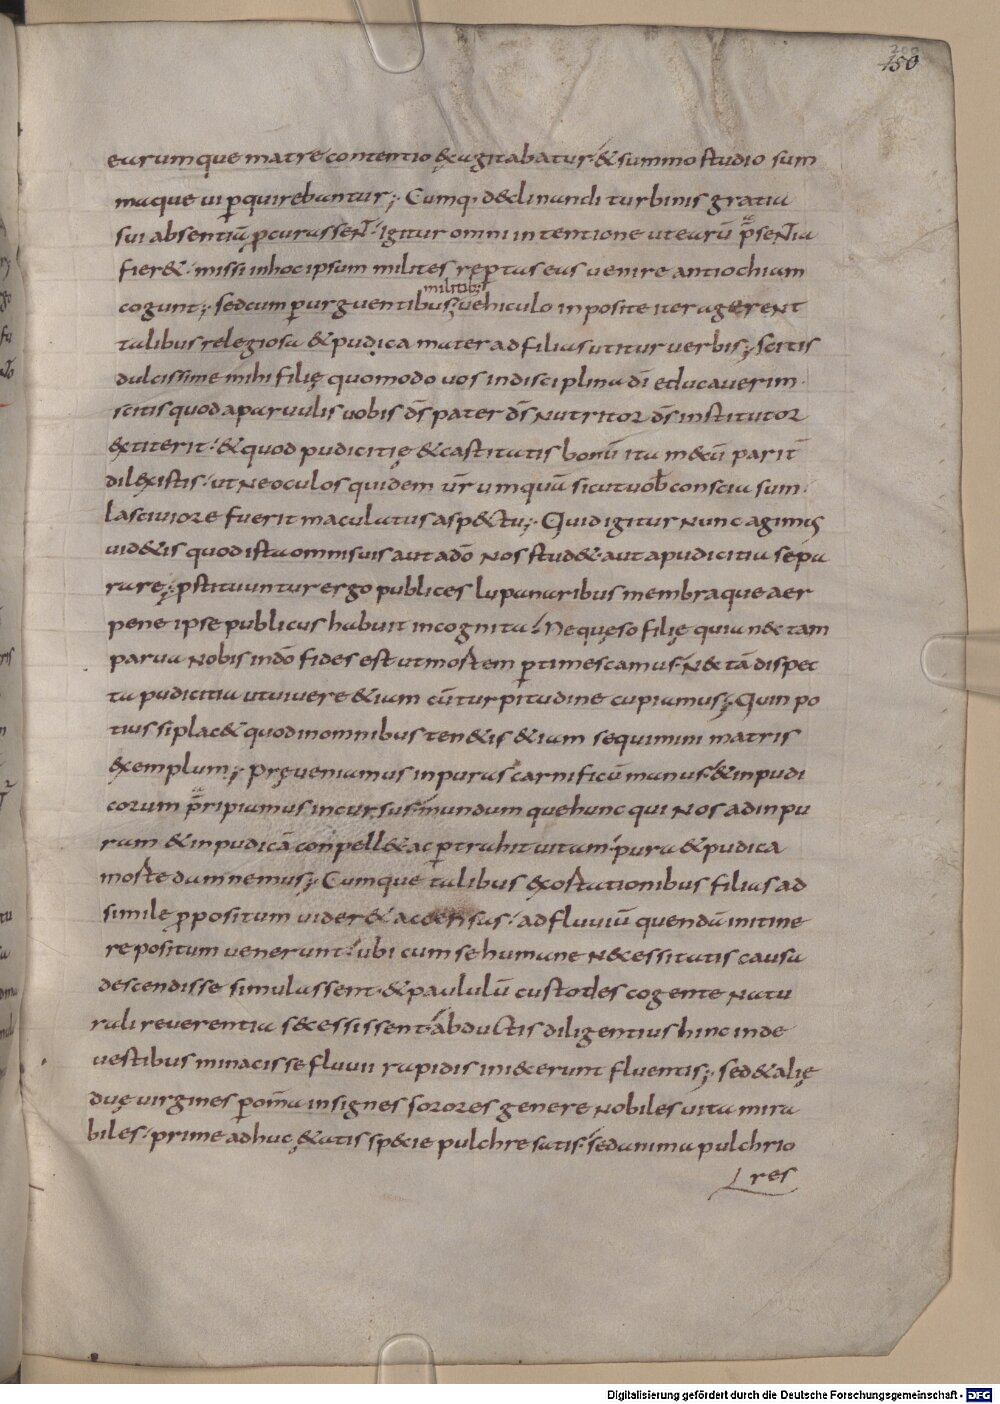 200
150
earumque matre contentio exagitabatur· & summo studio sum
maque ui ꝑquirebantur;· Cumq· declinandi turbinis gratia
sui absentiā ꝓcurassent· igitur omni intentione ut earū p̄sentia
fier&· missi inhoc ipsum milites reꝑtas eas uenire antiochiam
cogunt;· sed cum ꝑurguentibus uehiculo inposite iter agerent
militib;
talibus relegiosa & pudica mater ad filias utitur uerbis;· scitis
dulcissime mihi filię quomodo uos in disciplina dī educauerim·
scitis quod a paruulis uobis d̄s pater d̄s nutritor d̄s institutor
extiterit· & quod pudicitię & castitatis bonū ita mecū parit̄
dilexistis· ut ne oculos quidem ūr umquā sicut uob̄ conscia sum·
lasciuiore fuerit maculatus aspectu;· Quid igitur nunc agimus
uidetis quod ista omnis uis aut a dō nos stud& aut a pudicitia sepa
rare;· ꝓstituuntur ergo publices lupanaribus membra que aer
pene ipse publicus habuit incognita· Ne queso filię quia nec tam
parua nobis in dō fides est ut mortem ꝑtimescamus· Nec tā dispec
ta pudicitia ut uiuere etiam cū turpitudine cupiamus;· Quin po
tius si placet quod in omnibus tenetis etiam sequimini matris
exemplum;· Pręueniamus inpuras carnificū manus· & inpudi
corum p̄ripiamus incursus· mundum que hunc qui nos ad inpu
ram & inpudicā conpellit ac ꝑtrahit uitam· pura & pudica
morte damnemus;· Cumque talibus exortationibus filias ad
simile ꝓpositum uideret accensas· ad fluuiū quendā in itine
re positum uenerunt· ubi cum se humane necessitatis causa
descendisse simulassent· & paululū custodes cogente natu
rali reuerentia secessissent· abductis diligentius hinc inde
uestibus minacis se fluuii rapidis iniecerunt fluentis;· sed & alię
duę uirgines ꝑ omnia insignes sorores genere nobiles uita mira
biles· prime adhuc ętatis specie pulchre satis· sed anima pulchrio
res
Digitalisierung gefördert durch die Deutsche Forschungsgemeinschaft - DFG